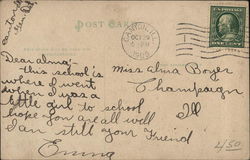 POST CARD
OCT 19
5 PM
1909
Dear Alma;-
this school is
where I went
when I was a
little girl to school
hope you are all well
I am still your Friend
Emma
Miss Alma Boyer
Champaign
Ill
ONE CENT
4/50